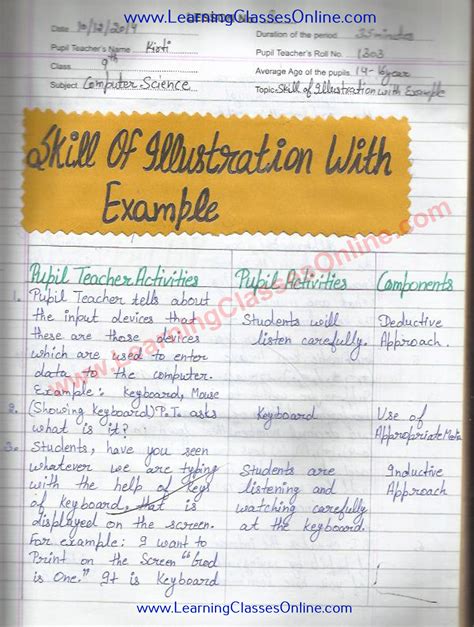 www.LearningClassesOnline.com
LESSON No.
Date 10/12/2019 Duration of the period 35 minutes
Pupil Teacher's Name Kirti Pupil Teacher's Roll No. 1303
Class 9th Average Age of the pupils 14-16 year
Subject Computer Science Topic Skill of Illustration with Example
Skill Of Illustration With
Example
Pupil Teacher Activities Pupil Activities Components
1. Pupil Teacher tells about
the input devices that Students will Deductive
these are those devices listen carefully. Approach.
which are used to enter
data to the computer.
Example: Keyboard, Mouse
2. (Showing Keyboard) P.T. asks Keyboard Use of
what is it? Appropriate
3. Students, have you seen
whatever we are typing Students are Inductive
with the help of keys listening and Approach
of keyboard, that is watching carefully
displayed on the screen. at the keyboard.
For example: I want to
Print on the Screen "God
is One." It is Keyboard
www.LearningClassesOnline.com
www.LearningClassesOnline.com